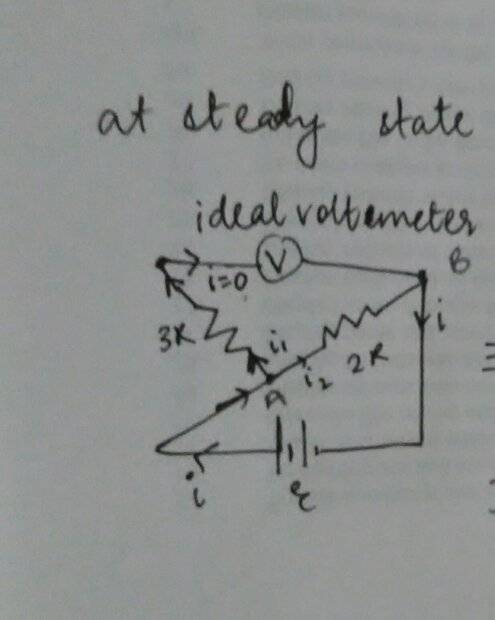 at steady state
ideal voltemeter
V
B
i=0
i
3R
i₁
2R
i₂
A
i
ε